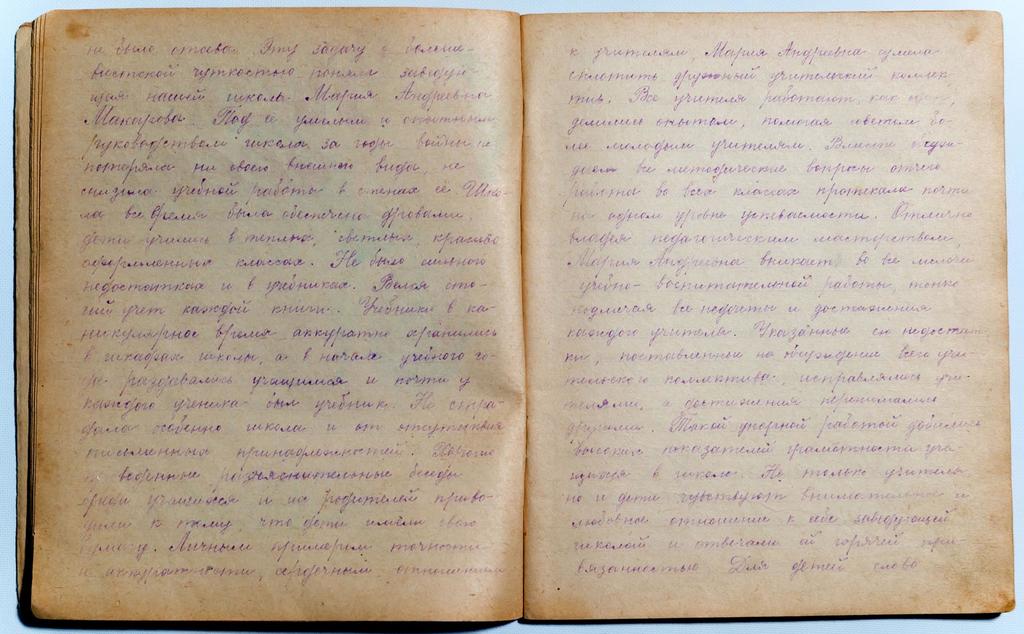 не было отсева. Эту задачу с больше-
вистской чуткостью поняла заведую-
щая нашей школы Мария Андреевна
Макарова. Под её умелым и опытным
руководством школа за годы войны не
потеряла ни своего внешнего вида, не
снизила учебной работы в стенах её. Шко-
ла все время была обеспечена дровами,
дети учились в теплых, светлых, красиво
оформленных классах. Не было сильного
недостатка и в учебниках. Велся стро-
гий учет каждой книги. Учебники в ка-
никулярное время аккуратно хранились
в шкафах школы, а в начале учебного го-
да раздавались учащимся и почти у
каждого ученика был учебник. Не стра-
дала особенно школа и от отсутствия
письменных принадлежностей.
разъяснительные беседы
среди учащихся и их родителей приво-
дили к тому, что дети имели свою
бумагу. Личным примером точности
и аккуратности, сердечным отношением
к учителям, Мария Андреевна сумела
сплотить дружный учительский коллек-
тив. Все учителя работают, как один,
делились опытом, помогая советом бо-
лее молодым учителям. Вместе
все методические вопросы отчего
работа во всех классах протекала почти
на одном уровне успеваемости. Отлично
владея педагогическим мастерством,
Мария Андреевна вникает во все мелочи
учебно-воспитательной работы, тонко
подмечая все недочеты и достижения
каждого учителя. Указанные ею недостат-
ки, поставленные на обсуждение всего учи-
тельского коллектива, исправлялись учи-
телями, а достижения перенимались
другими. Такой упорной работой добились
высоких показателей грамотности уча-
щихся в школе. Не только учитель,
но и дети чувствуют внимательное и
любовное отношение к себе заведующей
школой и отвечали ей горячей при-
вязанностью. Для детей слово